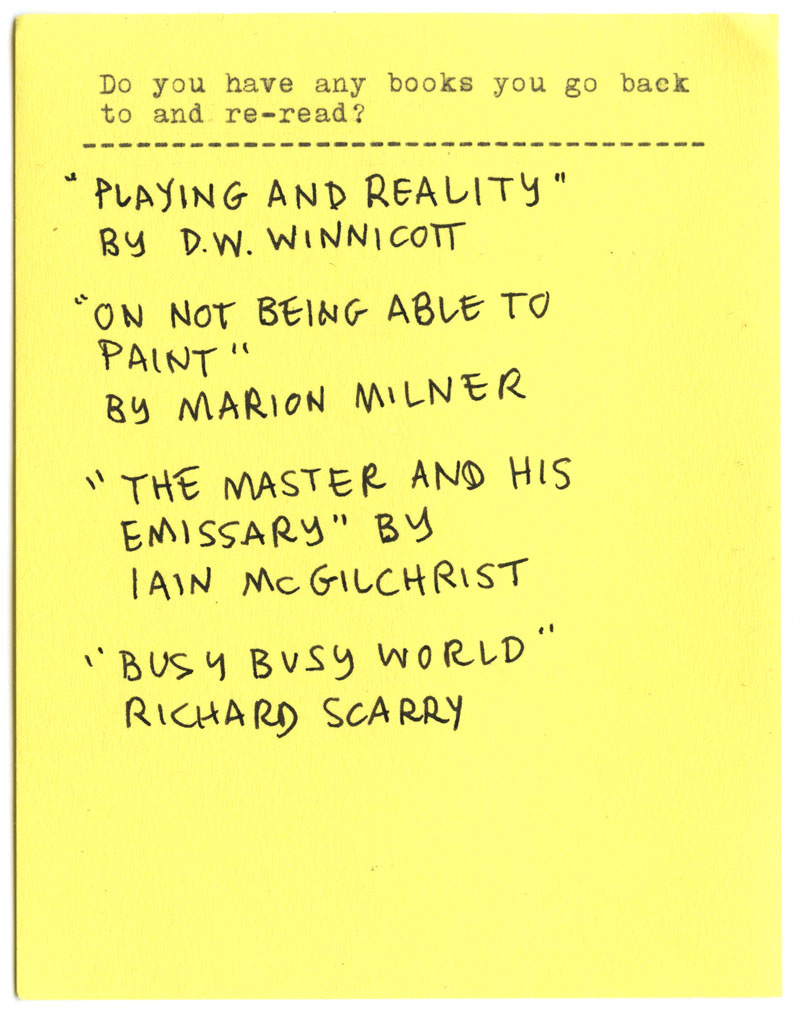 Do you have any books you go back
to and re-read?
"PLAYING AND REALITY"
BY D.W. WINNICOTT
"ON NOT BEING ABLE TO
PAINT"
BY MARION MILNER
"THE MASTER AND HIS
EMISSARY" BY
IAIN McGILCHRIST
"BUSY BUSY WORLD"
RICHARD SCARRY